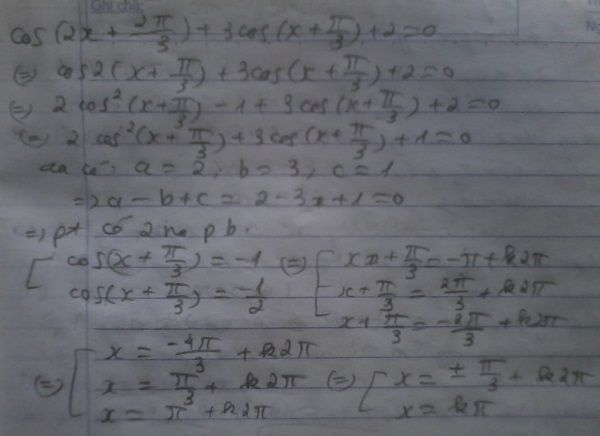 Ghi chú:
cos(2x + 2π/3) + 3cos(x + π/3) + 2 = 0
(=) cos2(x + π/3) + 3cos(x + π/3) + 2 = 0
(=) 2cos²(x + π/3) - 1 + 3cos(x + π/3) + 2 = 0
(=) 2cos²(x + π/3) + 3cos(x + π/3) + 1 = 0
ta có: a = 2; b = 3; c = 1
=) a - b + c = 2 - 3 + 1 = 0
=) pt có 2 no pb.
[ cos(x + π/3) = -1 (=) [ x + π/3 = -π + k2π
cos(x + π/3) = -1/2 x + π/3 = 2π/3 + k2π
x + π/3 = -2π/3 + k2π
(=) [ x = -4π/3 + k2π
x = π/3 + k2π (=) [ x = ± π/3 + k2π
x = π + k2π x = kπ